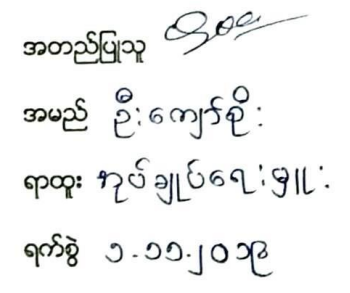 အတည်ပြုသူ
အမည် ဦးကျော်စိုး
ရာထူး အုပ်ချုပ်ရေးမှူး
ရက်စွဲ ၁.၁၁.၂၀၁၉